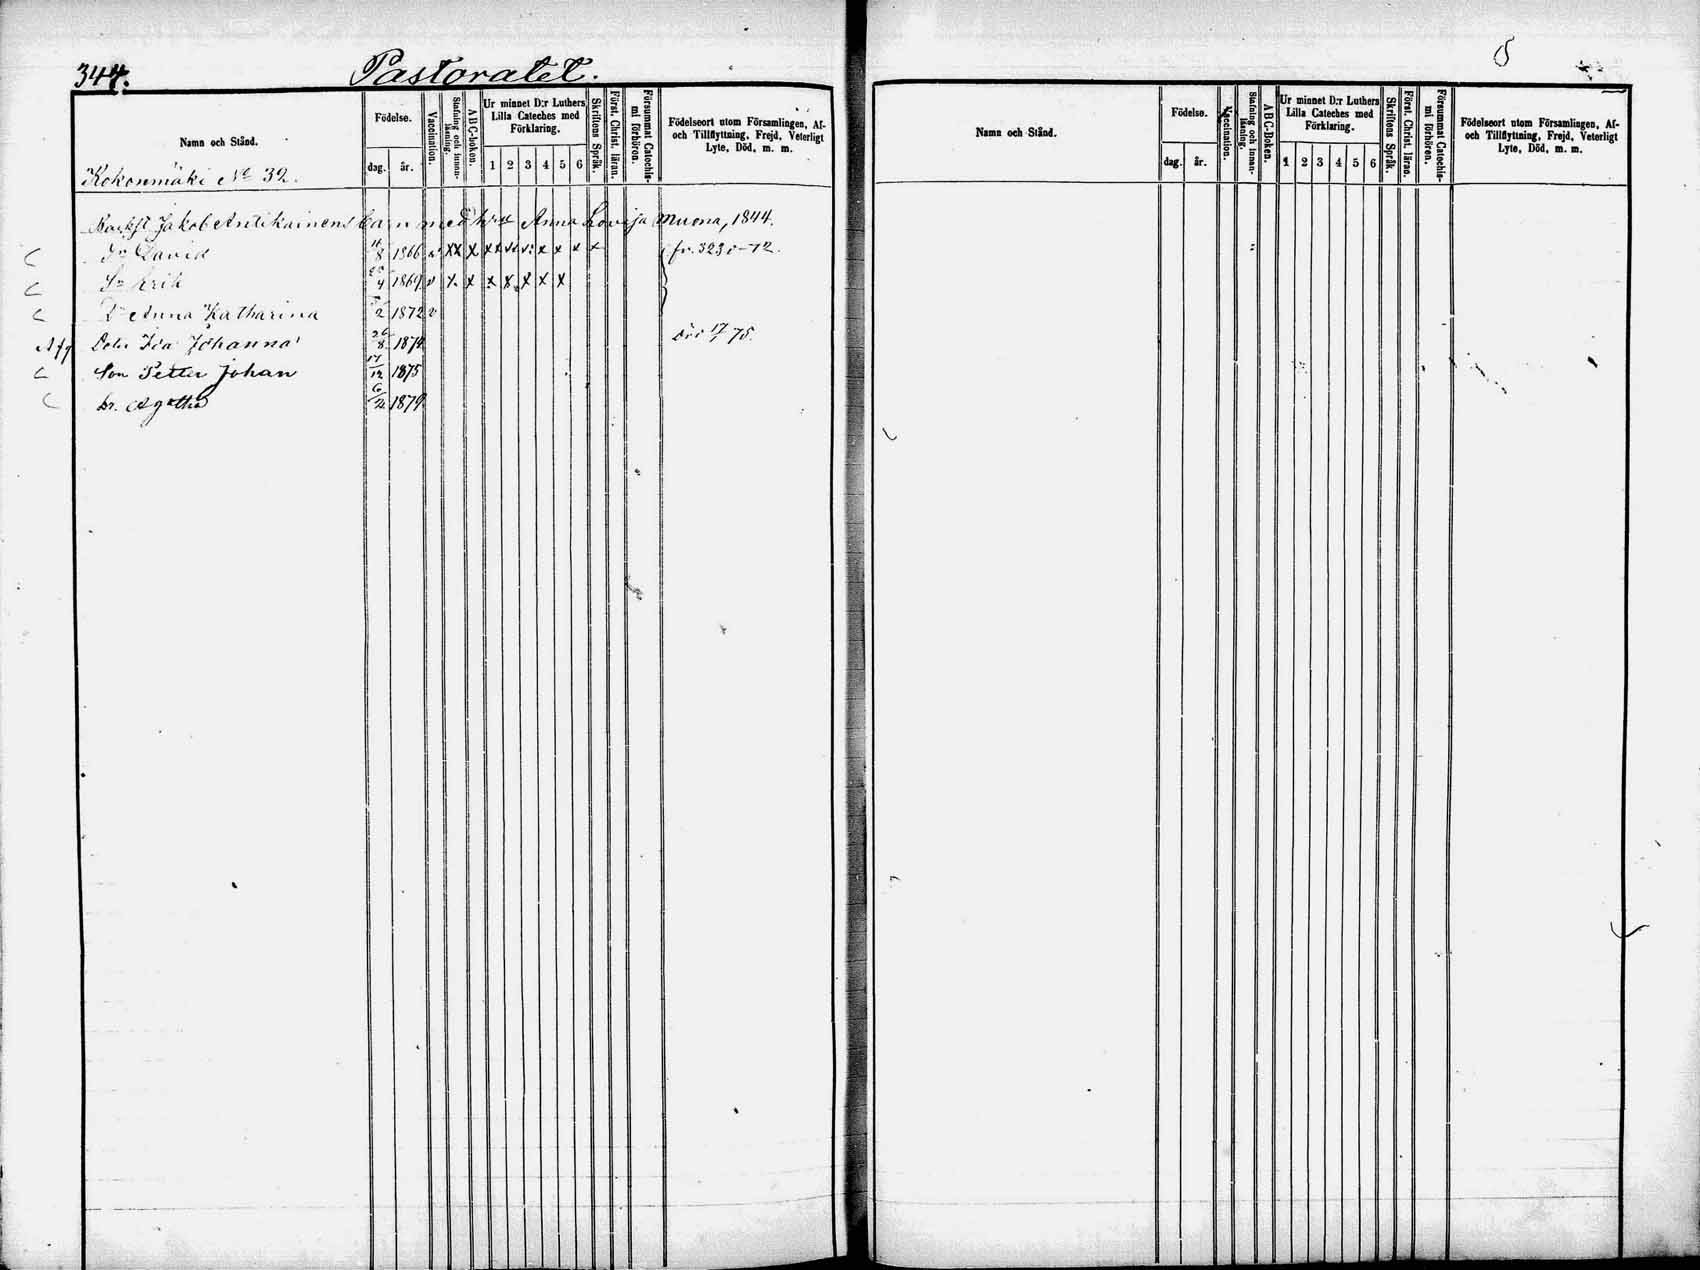 344.
Pastoratet.
Namn och Stånd.
Födelse.
dag.
år.
Vaccination.
Stafning och innanläsning.
ABC-Boken.
Ur minnet D:r Luthers Lilla Cateches med Förklaring.
1 2 3 4 5 6
Skriftens Språk.
Först. Christ. läran.
Försummat Catechismi förhören.
Födelseort utom Församlingen, Af- och Tillflyttning, Frejd, Veterligt Lyte, Död, m. m.
Kokonmäki No 32.
Jakob Antikainens barn med hru Anna Lovisa Muona, 1844.
Sn David 11/8 1866 v xx x x x x x x x x fr. 323 72.
Sn Erik 4 1869 v x x x x x x x
Dr Anna Katharina 2 1872 v
Afg Dotr Ida Johanna 26/8 1874 död 17/ 75.
Son Petter Johan 17/12 1875
Dr. Agatha 6/2 1879
5
Namn och Stånd.
Födelse.
dag.
år.
Vaccination.
Stafning och innanläsning.
ABC-Boken.
Ur minnet D:r Luthers Lilla Cateches med Förklaring.
1 2 3 4 5 6
Skriftens Språk.
Först. Christ. läran.
Försummat Catechismi förhören.
Födelseort utom Församlingen, Af- och Tillflyttning, Frejd, Veterligt Lyte, Död, m. m.